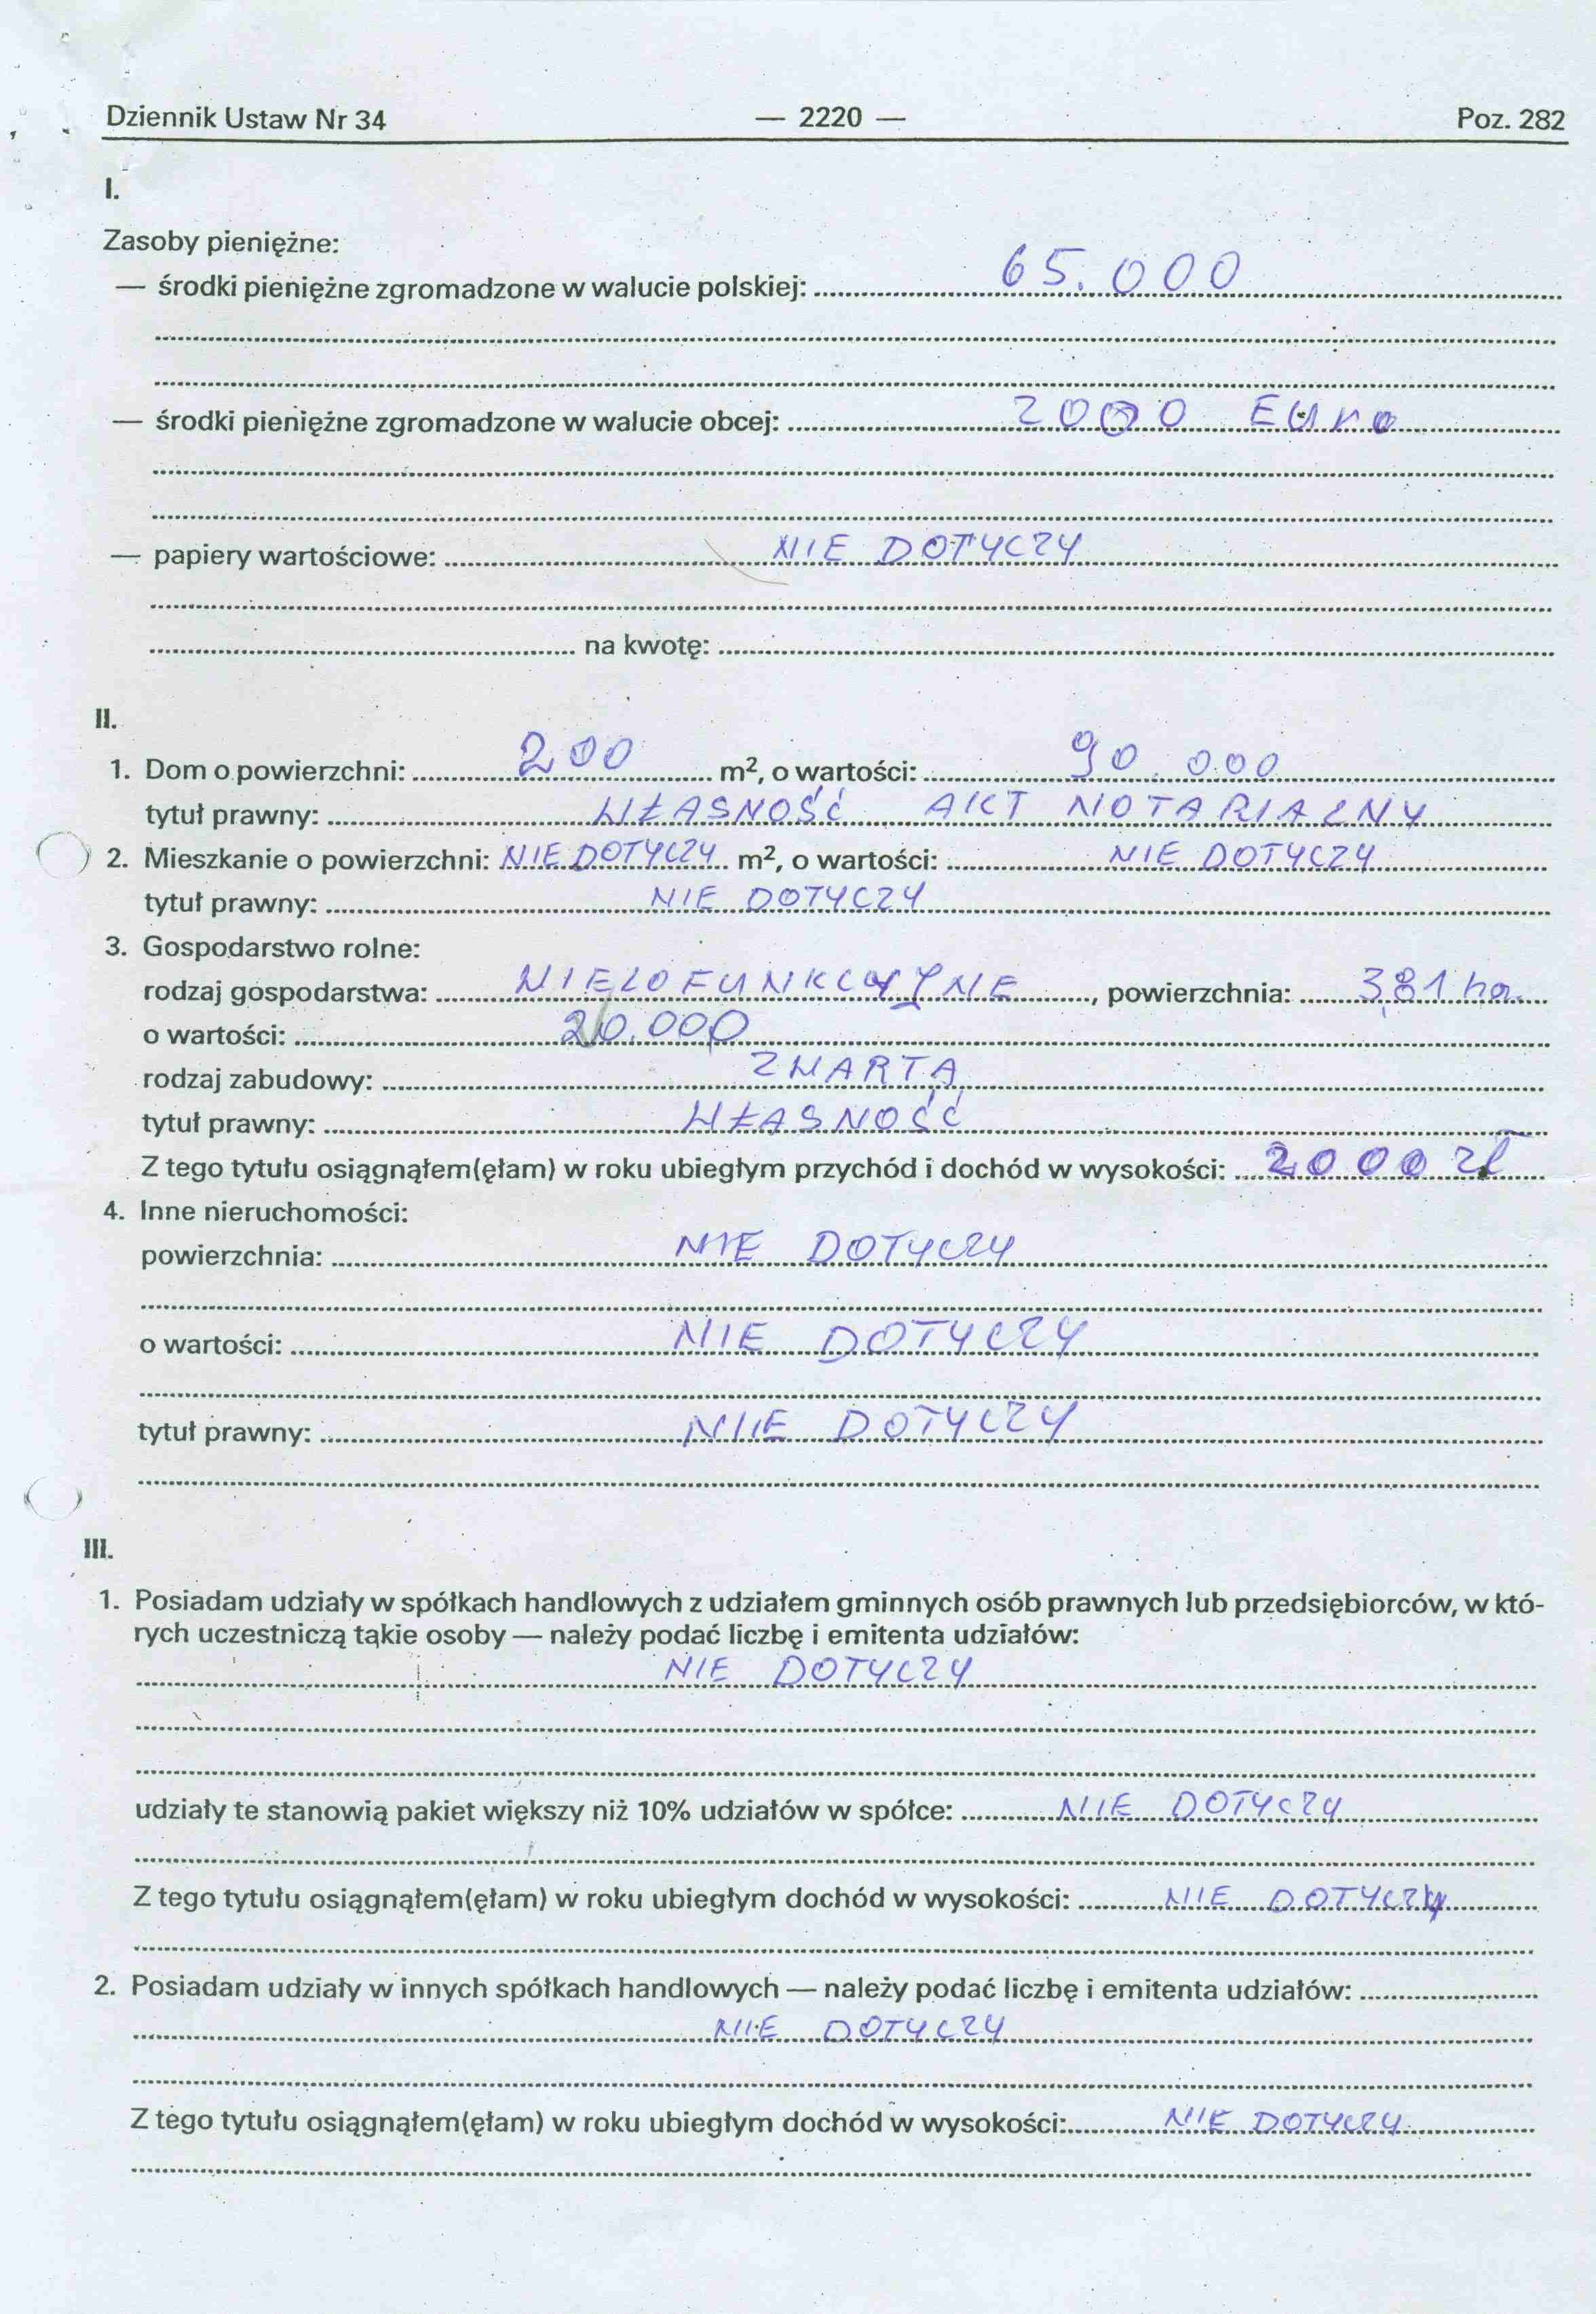 Dziennik Ustaw Nr 34 — 2220 — Poz. 282
I.
Zasoby pieniężne:
— środki pieniężne zgromadzone w walucie polskiej: 65.000
— środki pieniężne zgromadzone w walucie obcej: 2000 Euro
— papiery wartościowe: NIE DOTYCZY
na kwotę:
II.
1. Dom o powierzchni: 200 m², o wartości: 90.000
tytuł prawny: WŁASNOŚĆ AKT NOTARIALNY
2. Mieszkanie o powierzchni: NIE DOTYCZY m², o wartości: NIE DOTYCZY
tytuł prawny: NIE DOTYCZY
3. Gospodarstwo rolne:
rodzaj gospodarstwa: WIELOFUNKCYJNE, powierzchnia: 3,81 ha
o wartości: 20.000
rodzaj zabudowy: ZWARTA
tytuł prawny: WŁASNOŚĆ
Z tego tytułu osiągnąłem(ęłam) w roku ubiegłym przychód i dochód w wysokości: 2000 zł
4. Inne nieruchomości:
powierzchnia: NIE DOTYCZY
o wartości: NIE DOTYCZY
tytuł prawny: NIE DOTYCZY
III.
1. Posiadam udziały w spółkach handlowych z udziałem gminnych osób prawnych lub przedsiębiorców, w któ-
rych uczestniczą takie osoby — należy podać liczbę i emitenta udziałów:
NIE DOTYCZY
udziały te stanowią pakiet większy niż 10% udziałów w spółce: NIE DOTYCZY
Z tego tytułu osiągnąłem(ęłam) w roku ubiegłym dochód w wysokości: NIE DOTYCZY
2. Posiadam udziały w innych spółkach handlowych — należy podać liczbę i emitenta udziałów:
NIE DOTYCZY
Z tego tytułu osiągnąłem(ęłam) w roku ubiegłym dochód w wysokości: NIE DOTYCZY